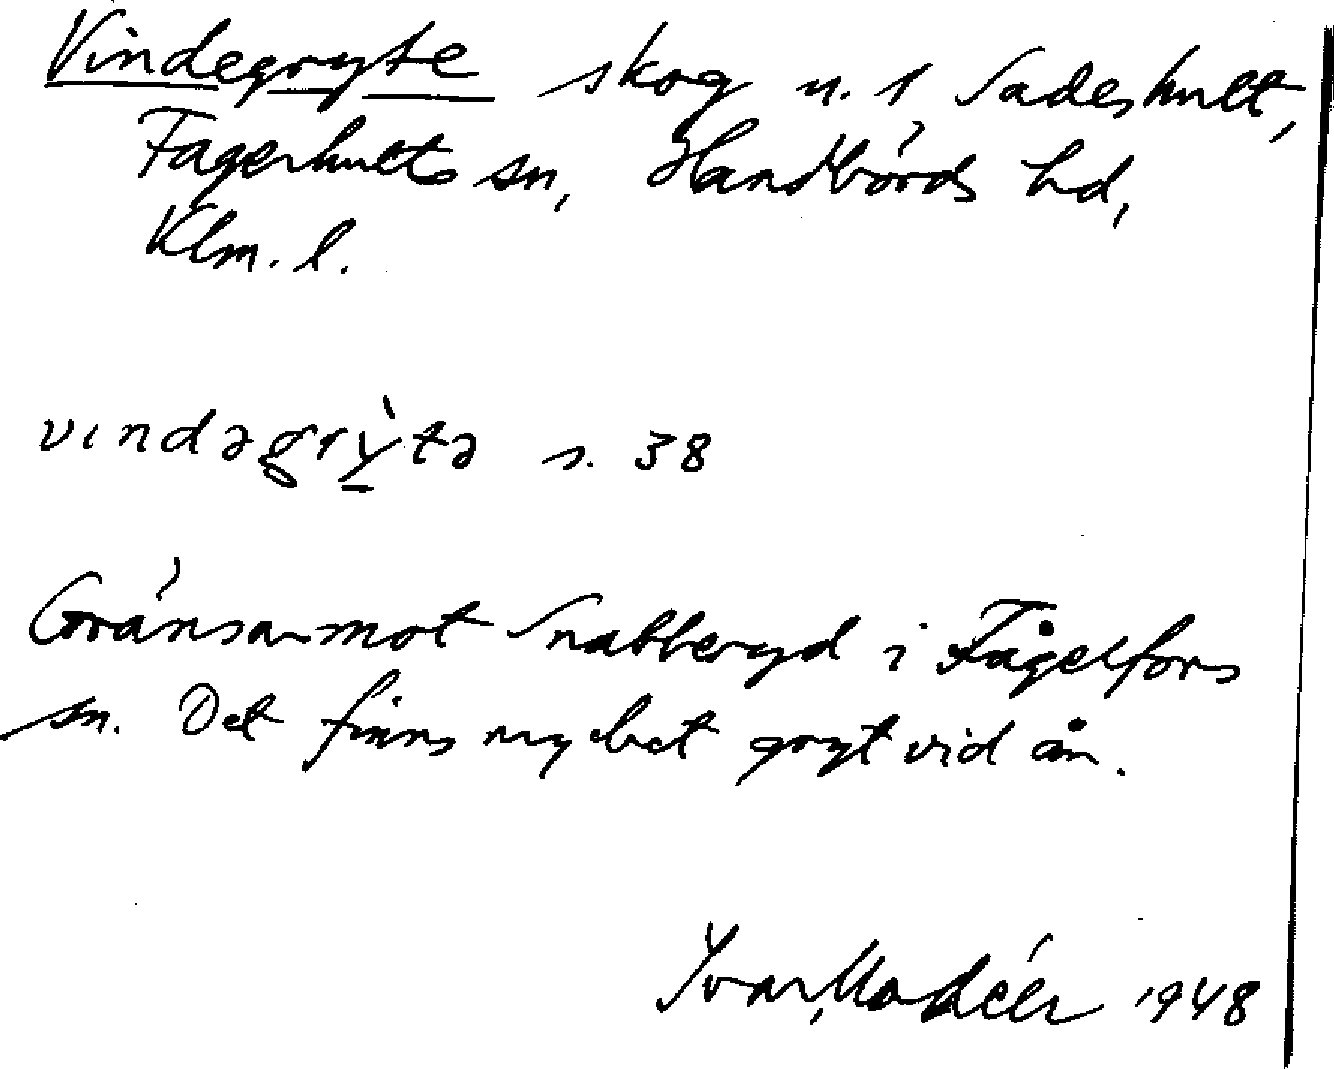 Vindegryte skog u. 1 Sadeshult,
Fagerhults sn, Handbörds hd,
Klm. l.
vindəgrỳtə s. 38
Gränsar mot Snabberyd i Fågelfors
sn. Det finns mycket gryt vid ån.
Ivar Modéer 1948